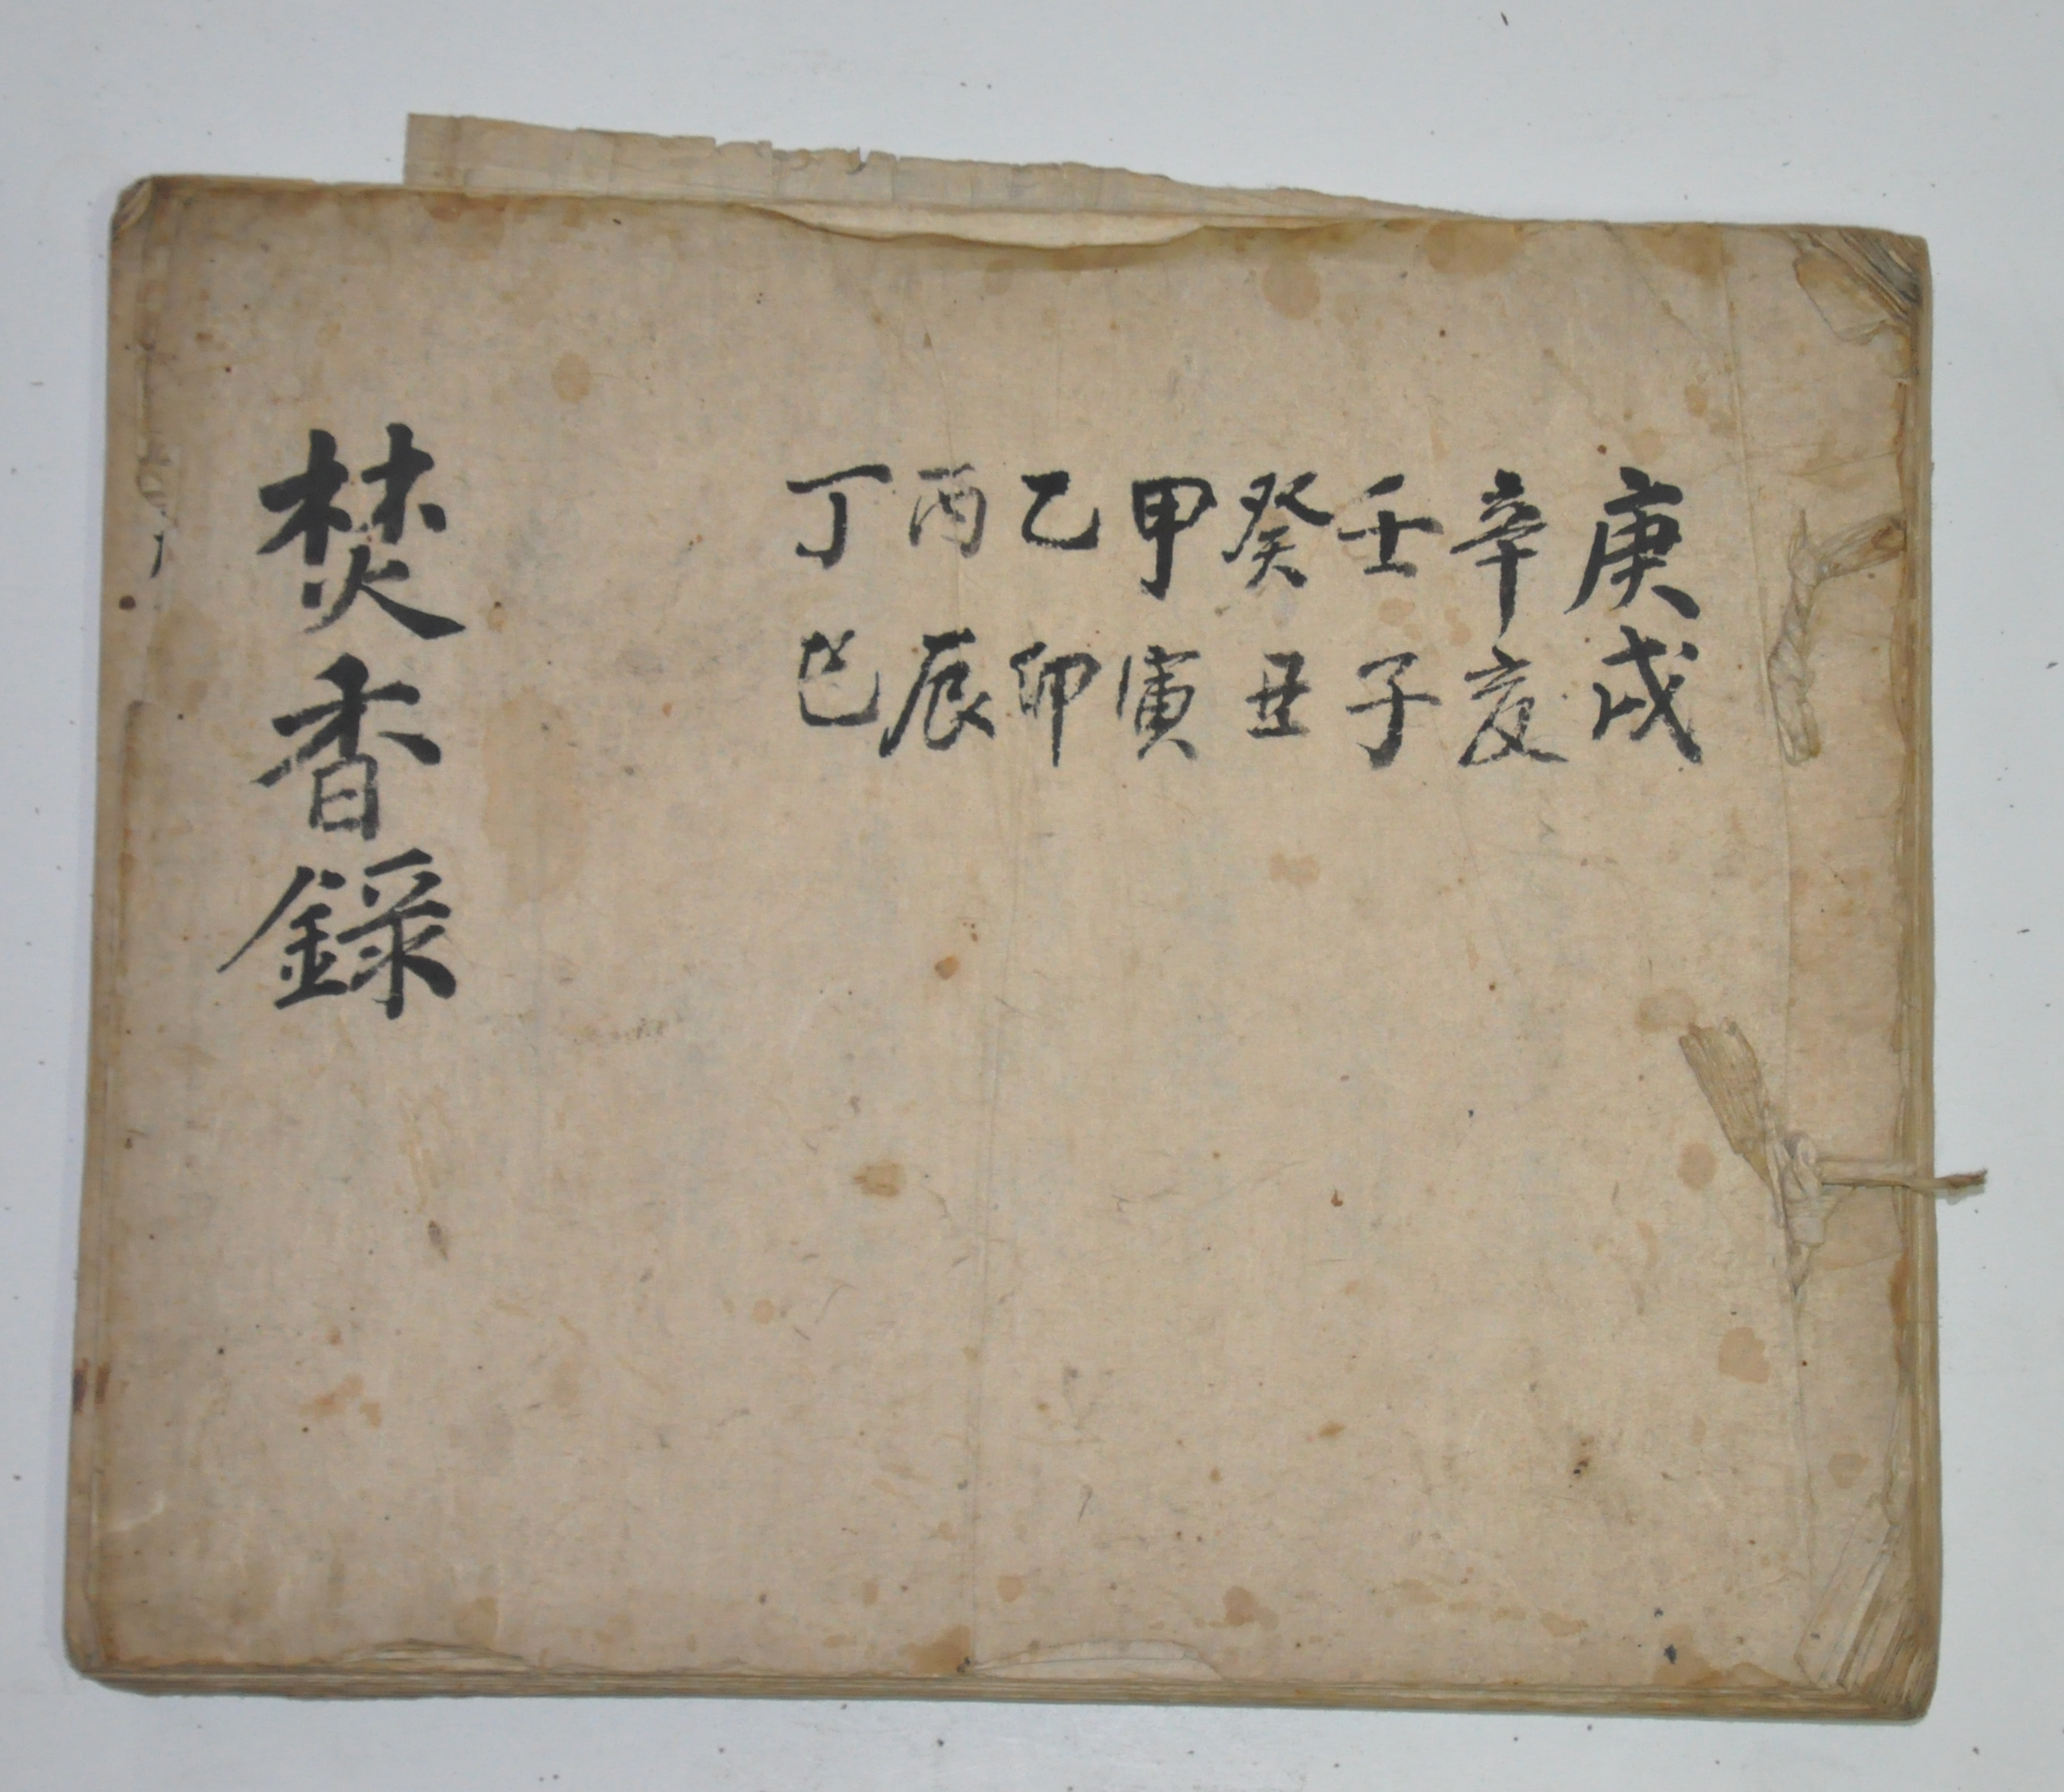 庚戌
辛亥
壬子
癸丑
甲寅
乙卯
丙辰
丁巳
焚香錄